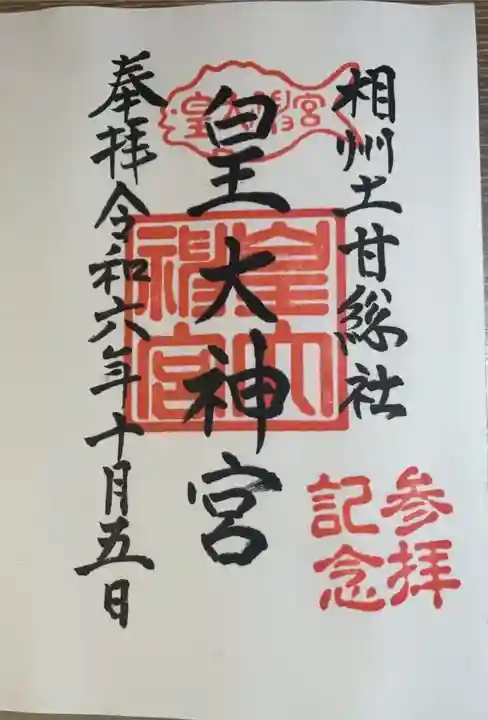 相州土甘総社
皇大神宮
奉拝令和六年十月五日
皇大神宮
皇大神宮
参拝
記念